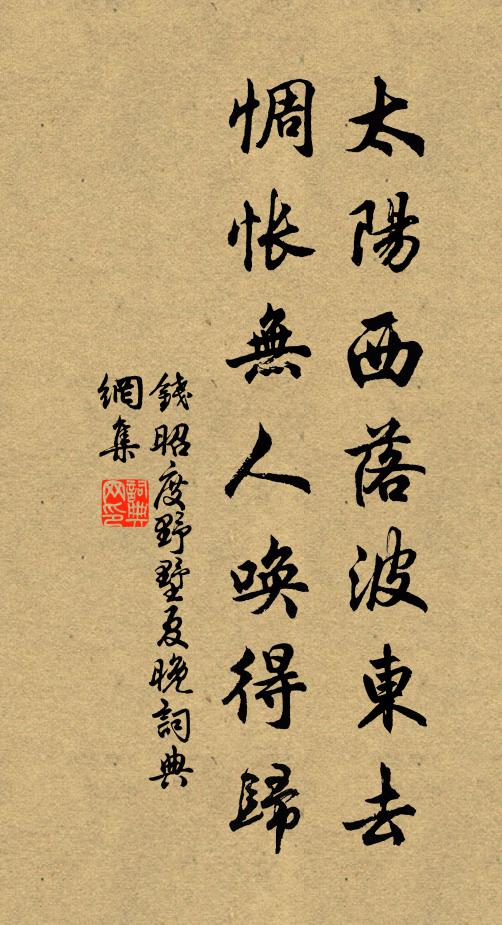 太陽西落波東去
惆悵無人喚得歸
錢昭度野墅夏晚詞典
網集
詞典網印